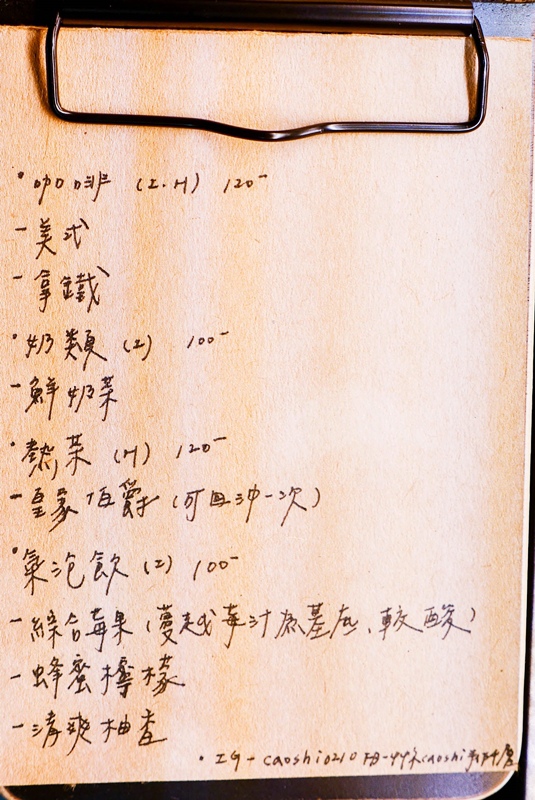 ·咖啡 (I.H) 120-
-美式
-拿鐵
·奶類 (I) 100-
-鮮奶茶
·熱茶 (H) 120-
-皇家伯爵 (可回沖一次)
·氣泡飲 (I) 100-
-綜合莓果 (蔓越莓汁為基底、較酸)
-蜂蜜檸檬
-清爽柚香
·IG-caoshi0210 caoshi